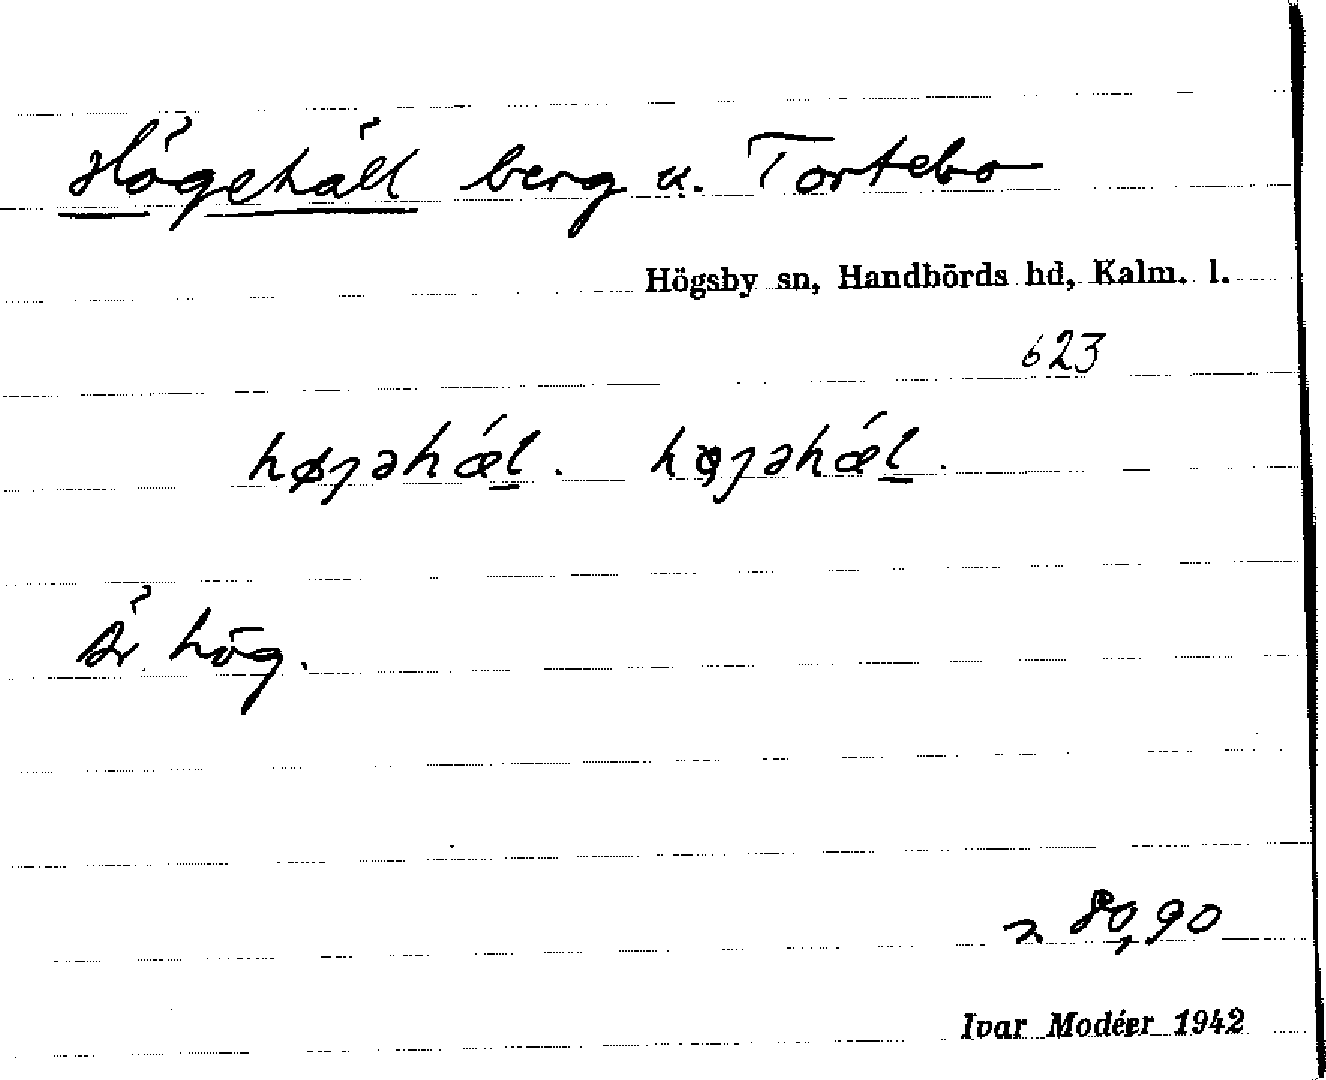 Högehäll berg u. Tortebo
Högsby sn, Handbörds hd, Kalm. l.
623
Är hög.
80,90
Ivar Modéer 1942